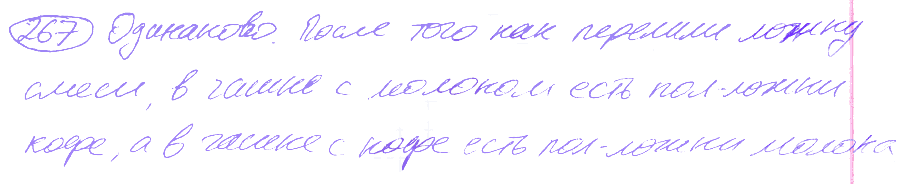 267 Одинаково. После того как перелили ложку
смеси, в чашке с молоком есть пол-ложки
кофе, а в чашке с кофе есть пол-ложки молока